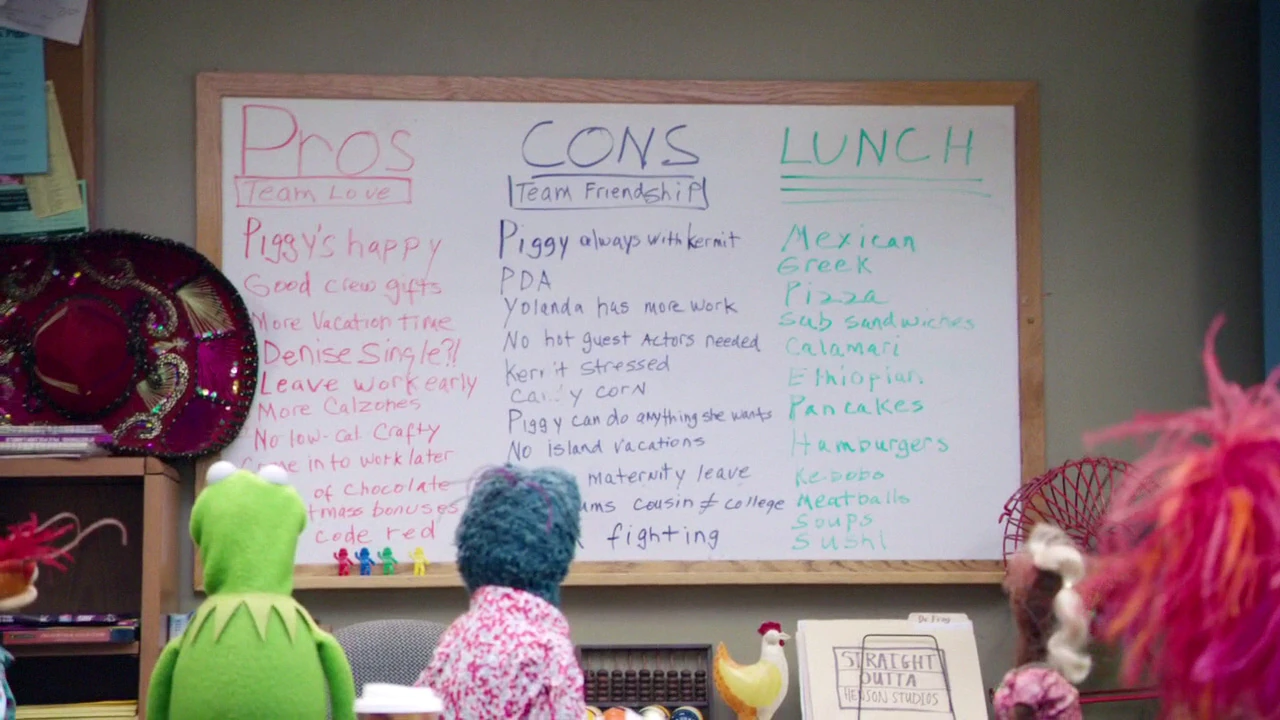 Pros
Team Love
Piggy's happy
Good crew gifts
More Vacation time
Denise Single?!
Leave work early
More Calzones
No low-cal Crafty
in to work later
of chocolate
bonuses
code red
CONS
Team Friendship
Piggy always with kermit
PDA
Yolanda has more work
No hot guest Actors needed
stressed
corn
Piggy can do anything she wants
No island vacations
maternity leave
cousin ≠ college
fighting
LUNCH
Mexican
Greek
Pizza
Sub sandwiches
Calamari
Ethiopian
Pancakes
Hamburgers
Meatballs
Soups
Sushi
STRAIGHT
OUTTA
HENSON STUDIOS